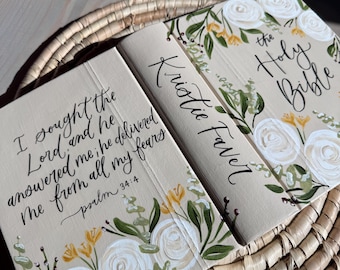 I sought the
Lord and he
answered me; he delivered
me from all my fears
psalm 34:4
Kristie Faver
the
Holy
Bible